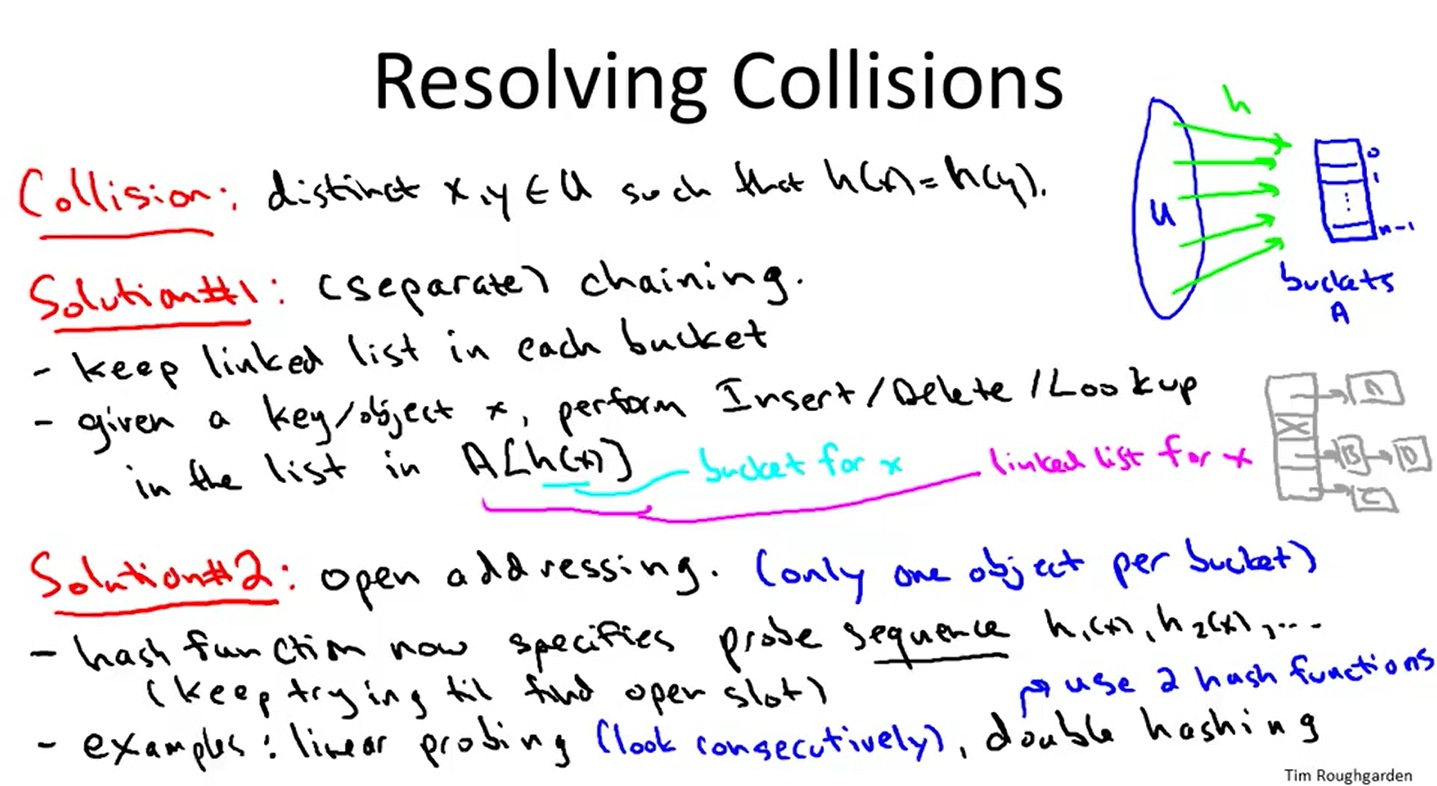 Resolving Collisions
Collision: distinct x,y ∈ U such that h(x)=h(y).
h
U
0
1
n-1
buckets
A
Solution#1: (separate) chaining.
- keep linked list in each bucket
- given a key/object x, perform Insert/Delete/Lookup
in the list in A[h(x)]
bucket for x
linked list for x
A
B
D
C
Solution#2: open addressing. (only one object per bucket)
- hash function now specifies probe sequence h₁(x), h₂(x), ...
(keep trying til find open slot)
use 2 hash functions
- examples: linear probing (look consecutively), double hashing
Tim Roughgarden